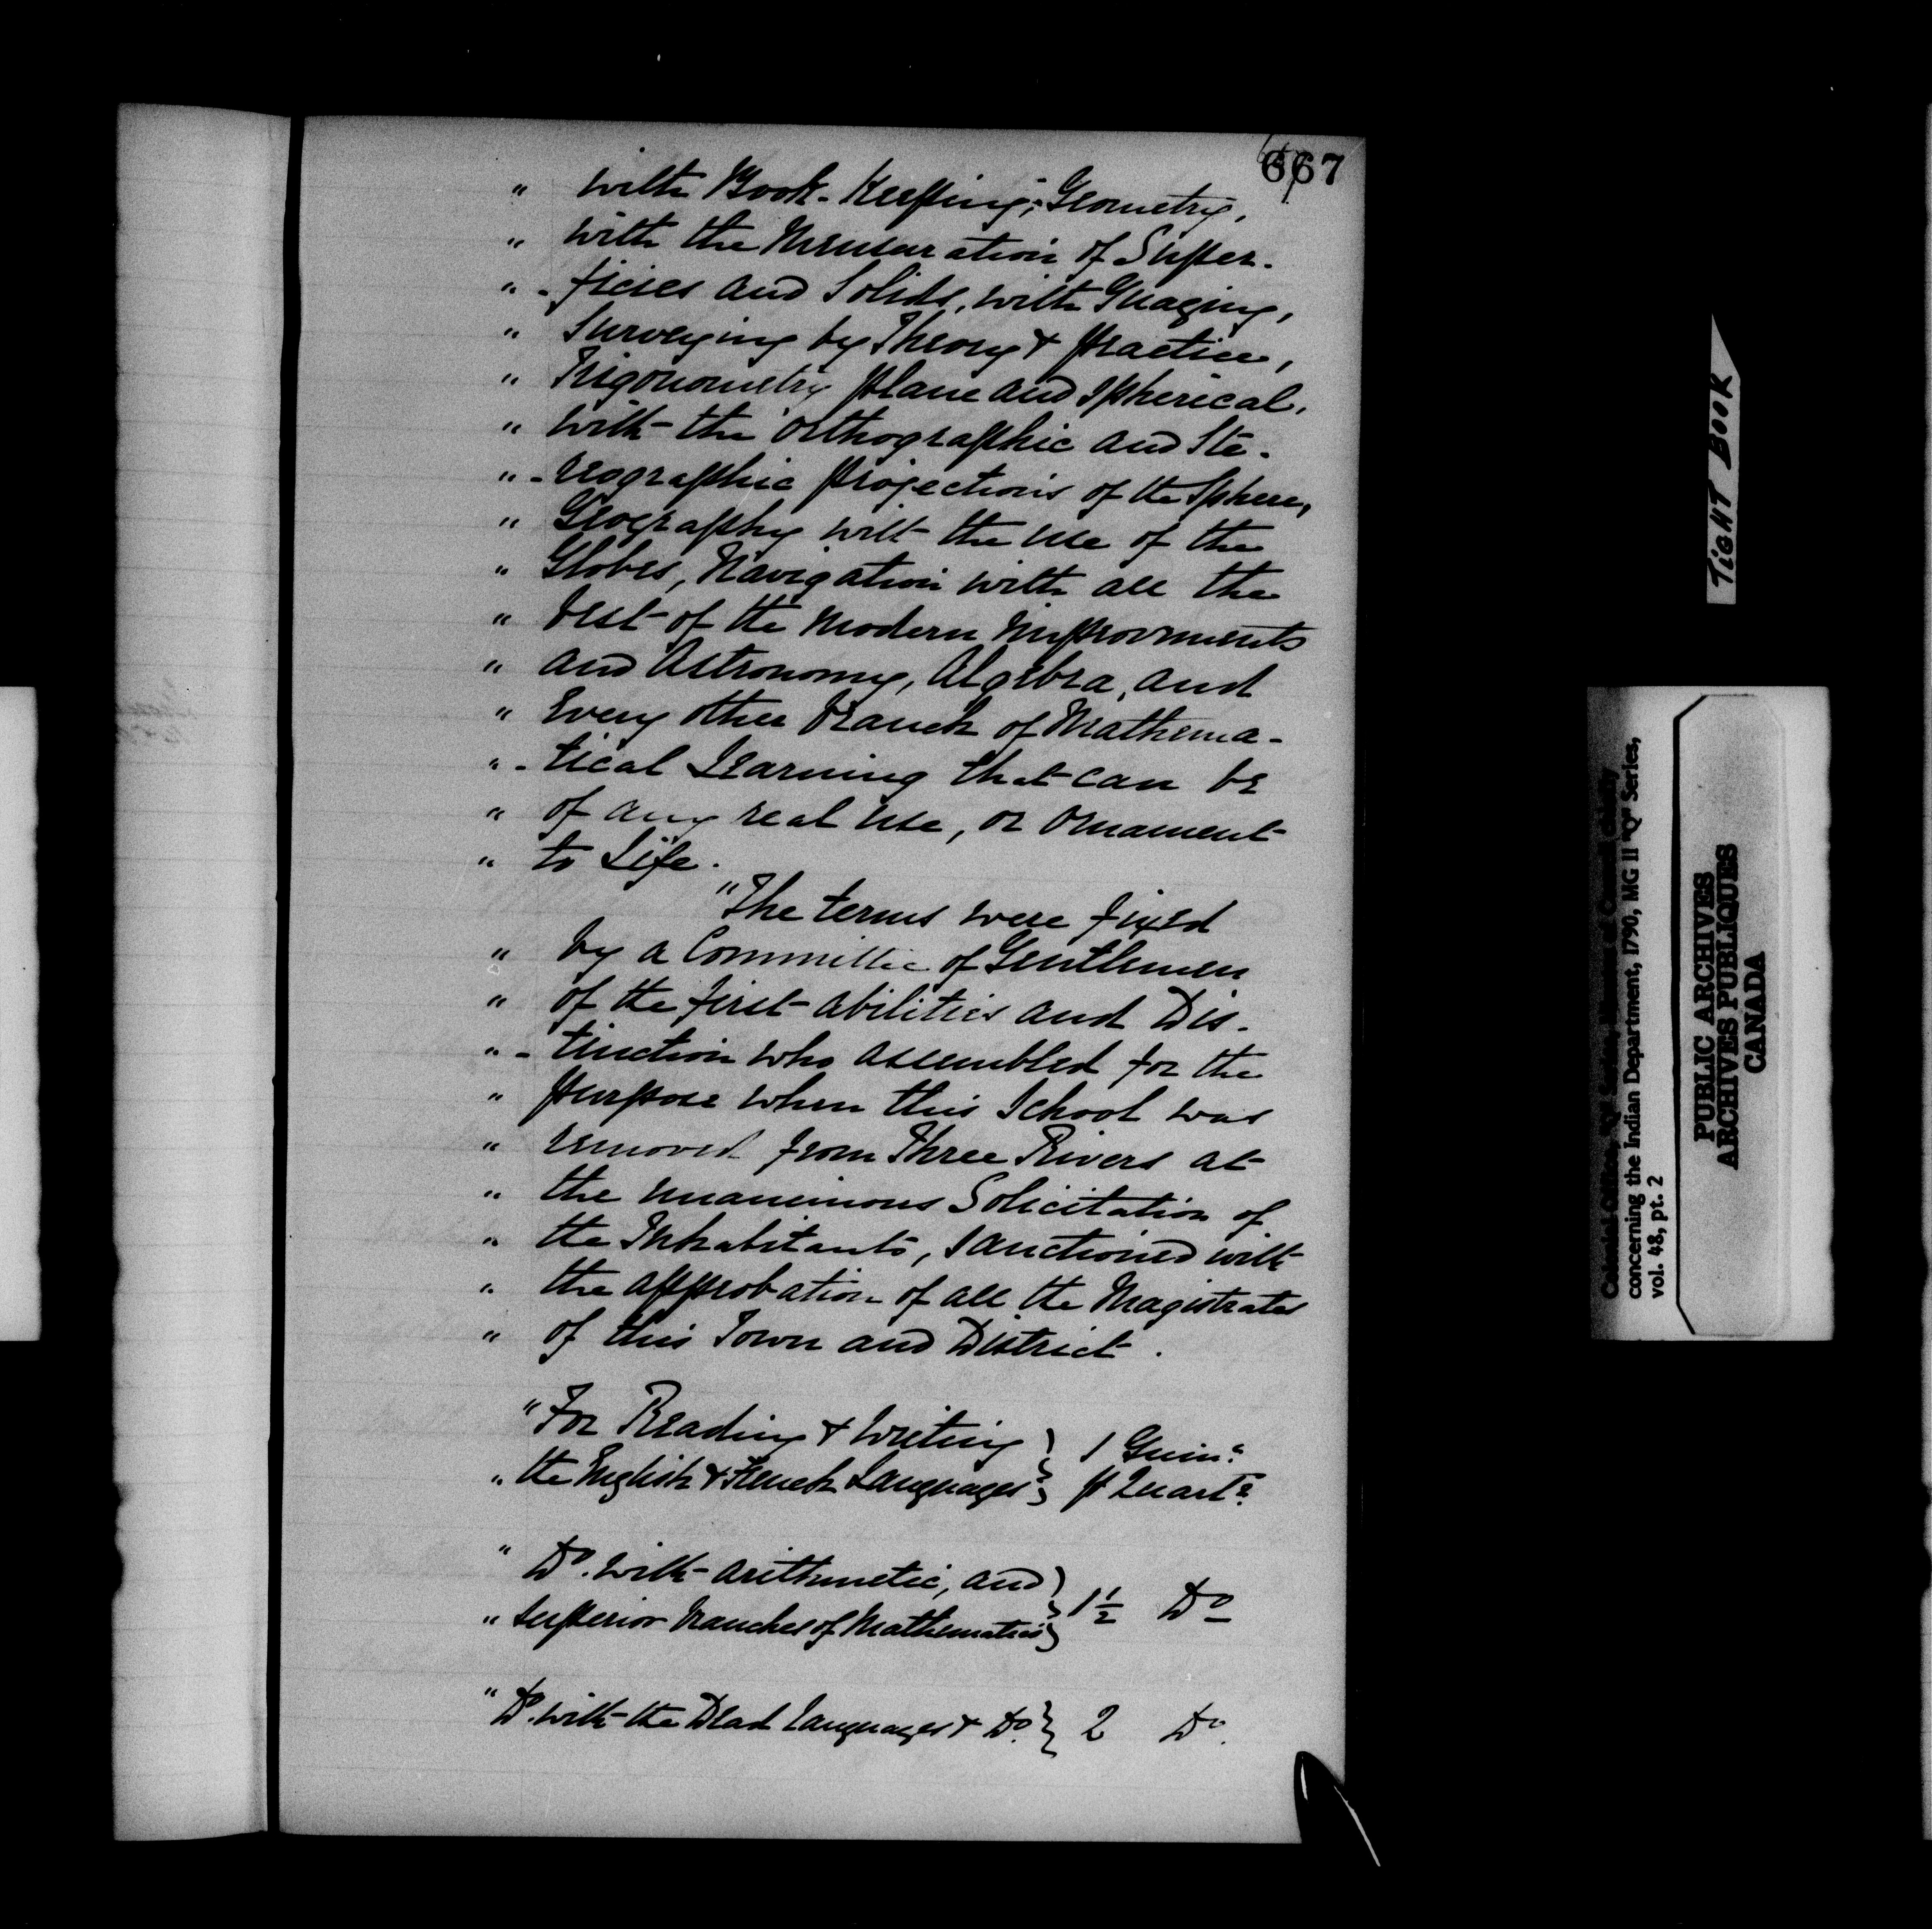 667
" with Book-Keeping; Geometry,
" with the Mensuration of Super-
" -ficies and Solids, with Guaging,
" Surveying by Theory & practice,
" Trigonometry plane and spherical,
" with the Orthographic and Ste-
" -reographic projections of the Sphere,
" Geography with the use of the
" Globes, Navigation with all the
" best of the modern improvments
" and Astronomy, Algebra, and
" Every other branch of Mathema-
" -tical Learning that can be
" of any real use, or Ornament
" to Life.
"The terms were fixed
" by a Committee of Gentlemen
" of the first abilities and Dis-
" -tinction who assembled for the
" purpose when this School was
" removed from Three Rivers at
" the unanimous Solicitation of
" the Inhabitants, sanctioned with
" the approbation of all the Magistrates
" of this Town and District.
"For Reading & Writing } 1 Guina
" the English & French Languages } p Quartr.
" Do. with Arithmetic, and }
" superior branches of Mathematics } 1½ Do
" Do. with the Dead Languages & Do. } 2 Do.
TIGHT BOOK
concerning the Indian Department, 1790, MG 11 "Q" Series,
vol. 48, pt. 2
PUBLIC ARCHIVES
ARCHIVES PUBLIQUES
CANADA